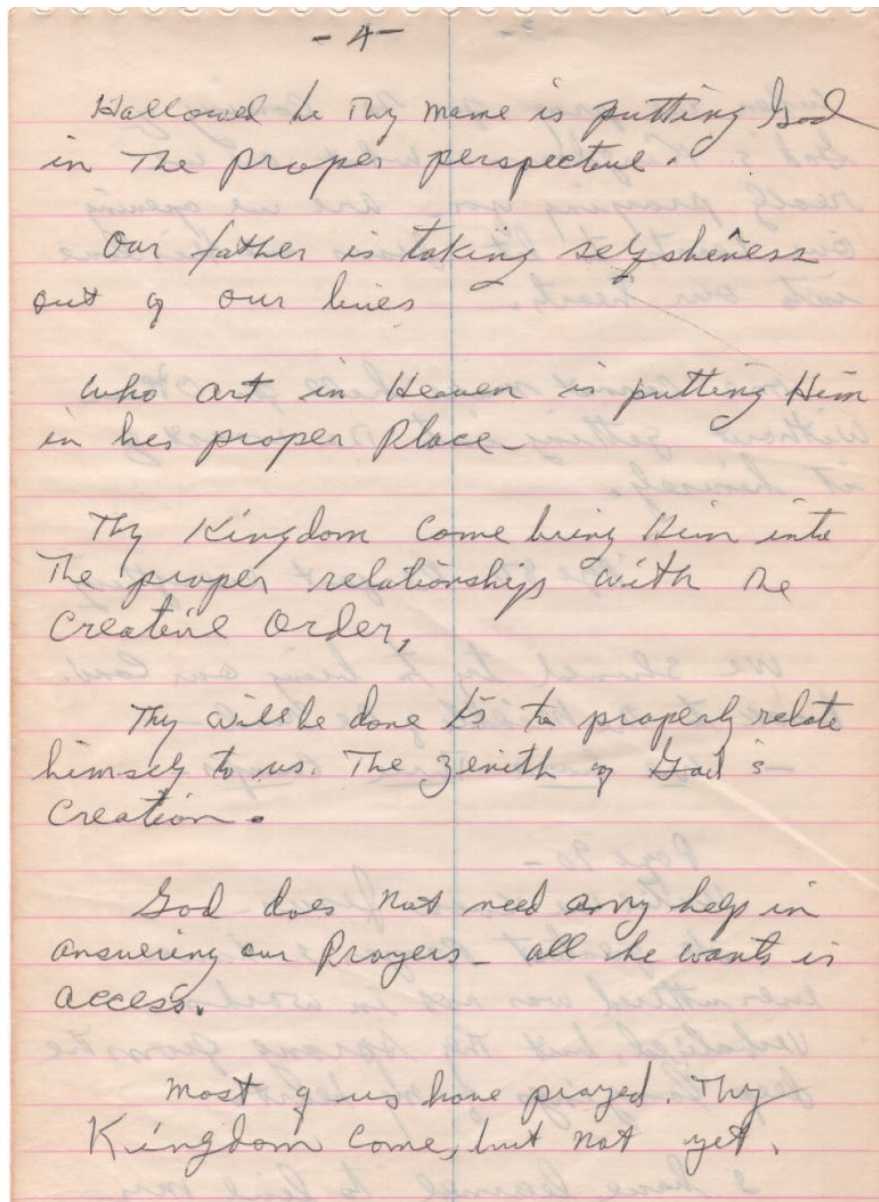 - 4 -
Hallowed be Thy name is putting God
in The Proper perspective.
Our father is taking selfisheness
out of our lives
Who art in Heaven is putting Him
in his proper Place -
Thy Kingdom Come bring Him into
The proper relationships with The
Creative Order,
Thy will be done Is to properly relate
himself to us. The Zenith of God's
Creation.
God does Not need any help in
answering our Prayers - all he wants is
access.
Most of us have prayed. Thy
Kingdom Come, but not yet.